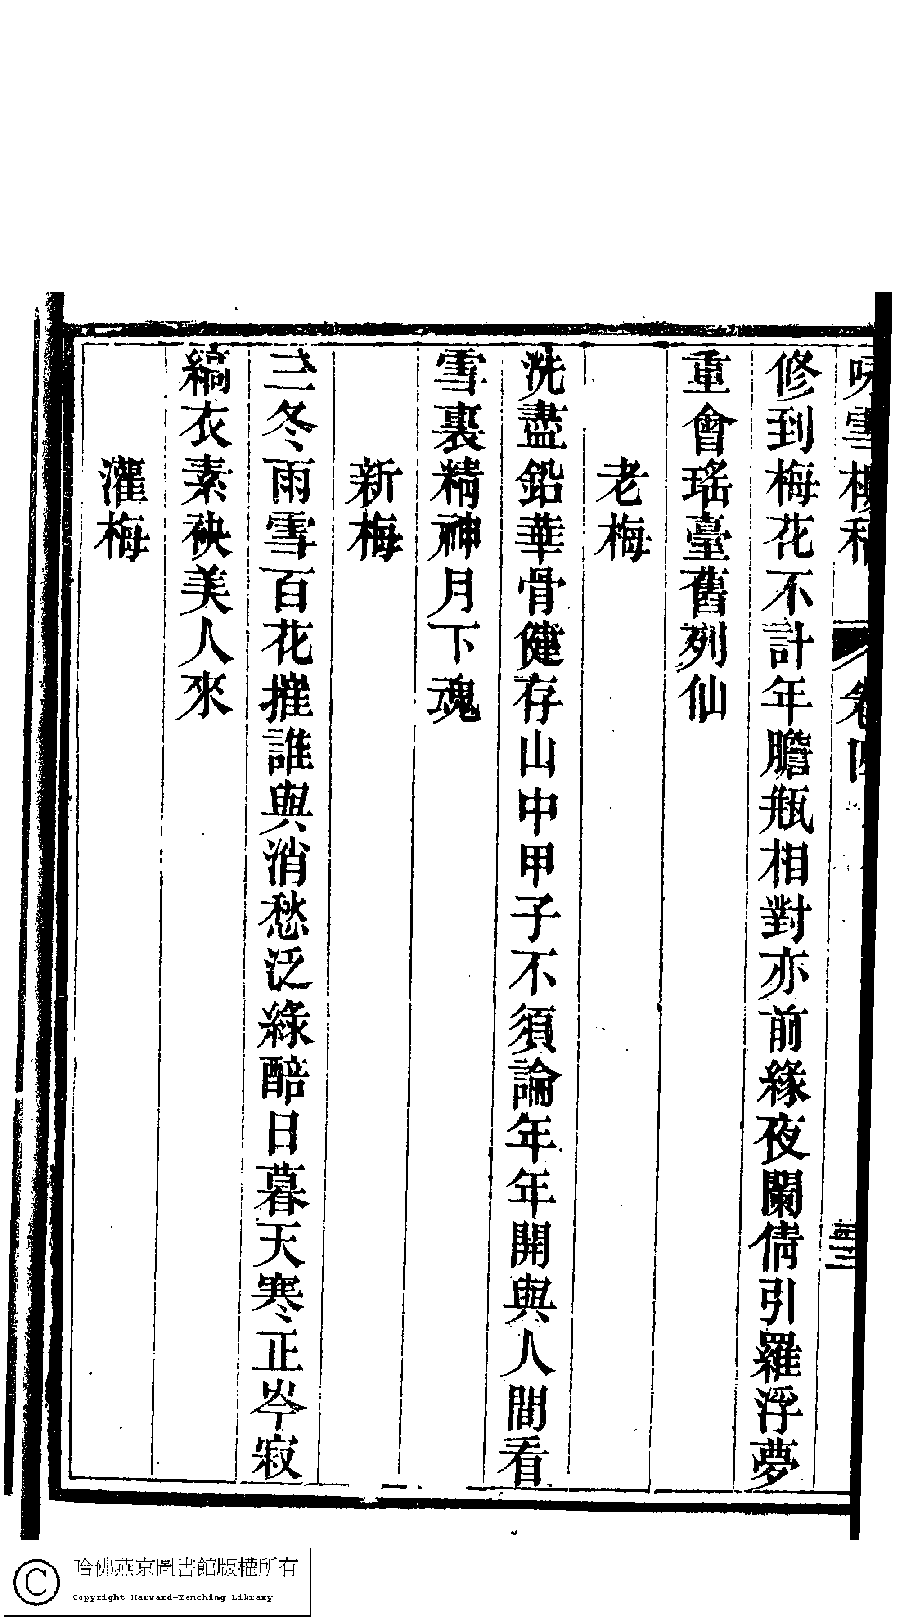 雪 卷四
修到梅花不計年膽瓶相對亦前緣夜闌倩引羅浮夢
重會瑤臺舊列仙
老梅
洗盡鉛華骨健存山中甲子不須論年年開與人間看
雪裏精神月下魂
新梅
三冬雨雪百花摧誰與消愁泛綠醅日暮天寒正岑寂
縞衣素袂美人來
灌梅
哈佛燕京圖書館版權所有
Copyright Harvard-Yenching Library